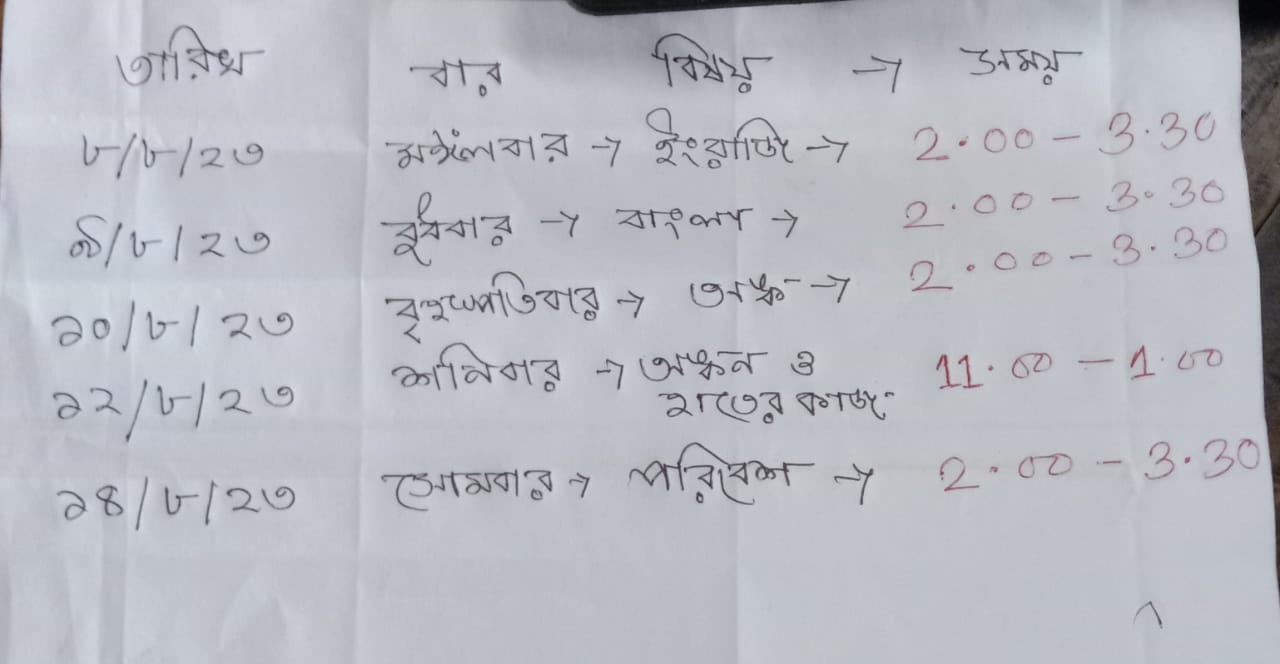 তারিখ বার বিষয় → সময়
৮/৮/২৩ মঙ্গলবার → ইংরাজি → 2.00 - 3.30
৯/৮/২৩ বুধবার → বাংলা → 2.00 - 3.30
১০/৮/২৩ বৃহস্পতিবার → অঙ্ক → 2.00 - 3.30
১২/৮/২৩ শনিবার → অঙ্কন ও 11.00 - 1.00
হাতের কাজ
১৪/৮/২৩ সোমবার → পরিবেশ → 2.00 - 3.30